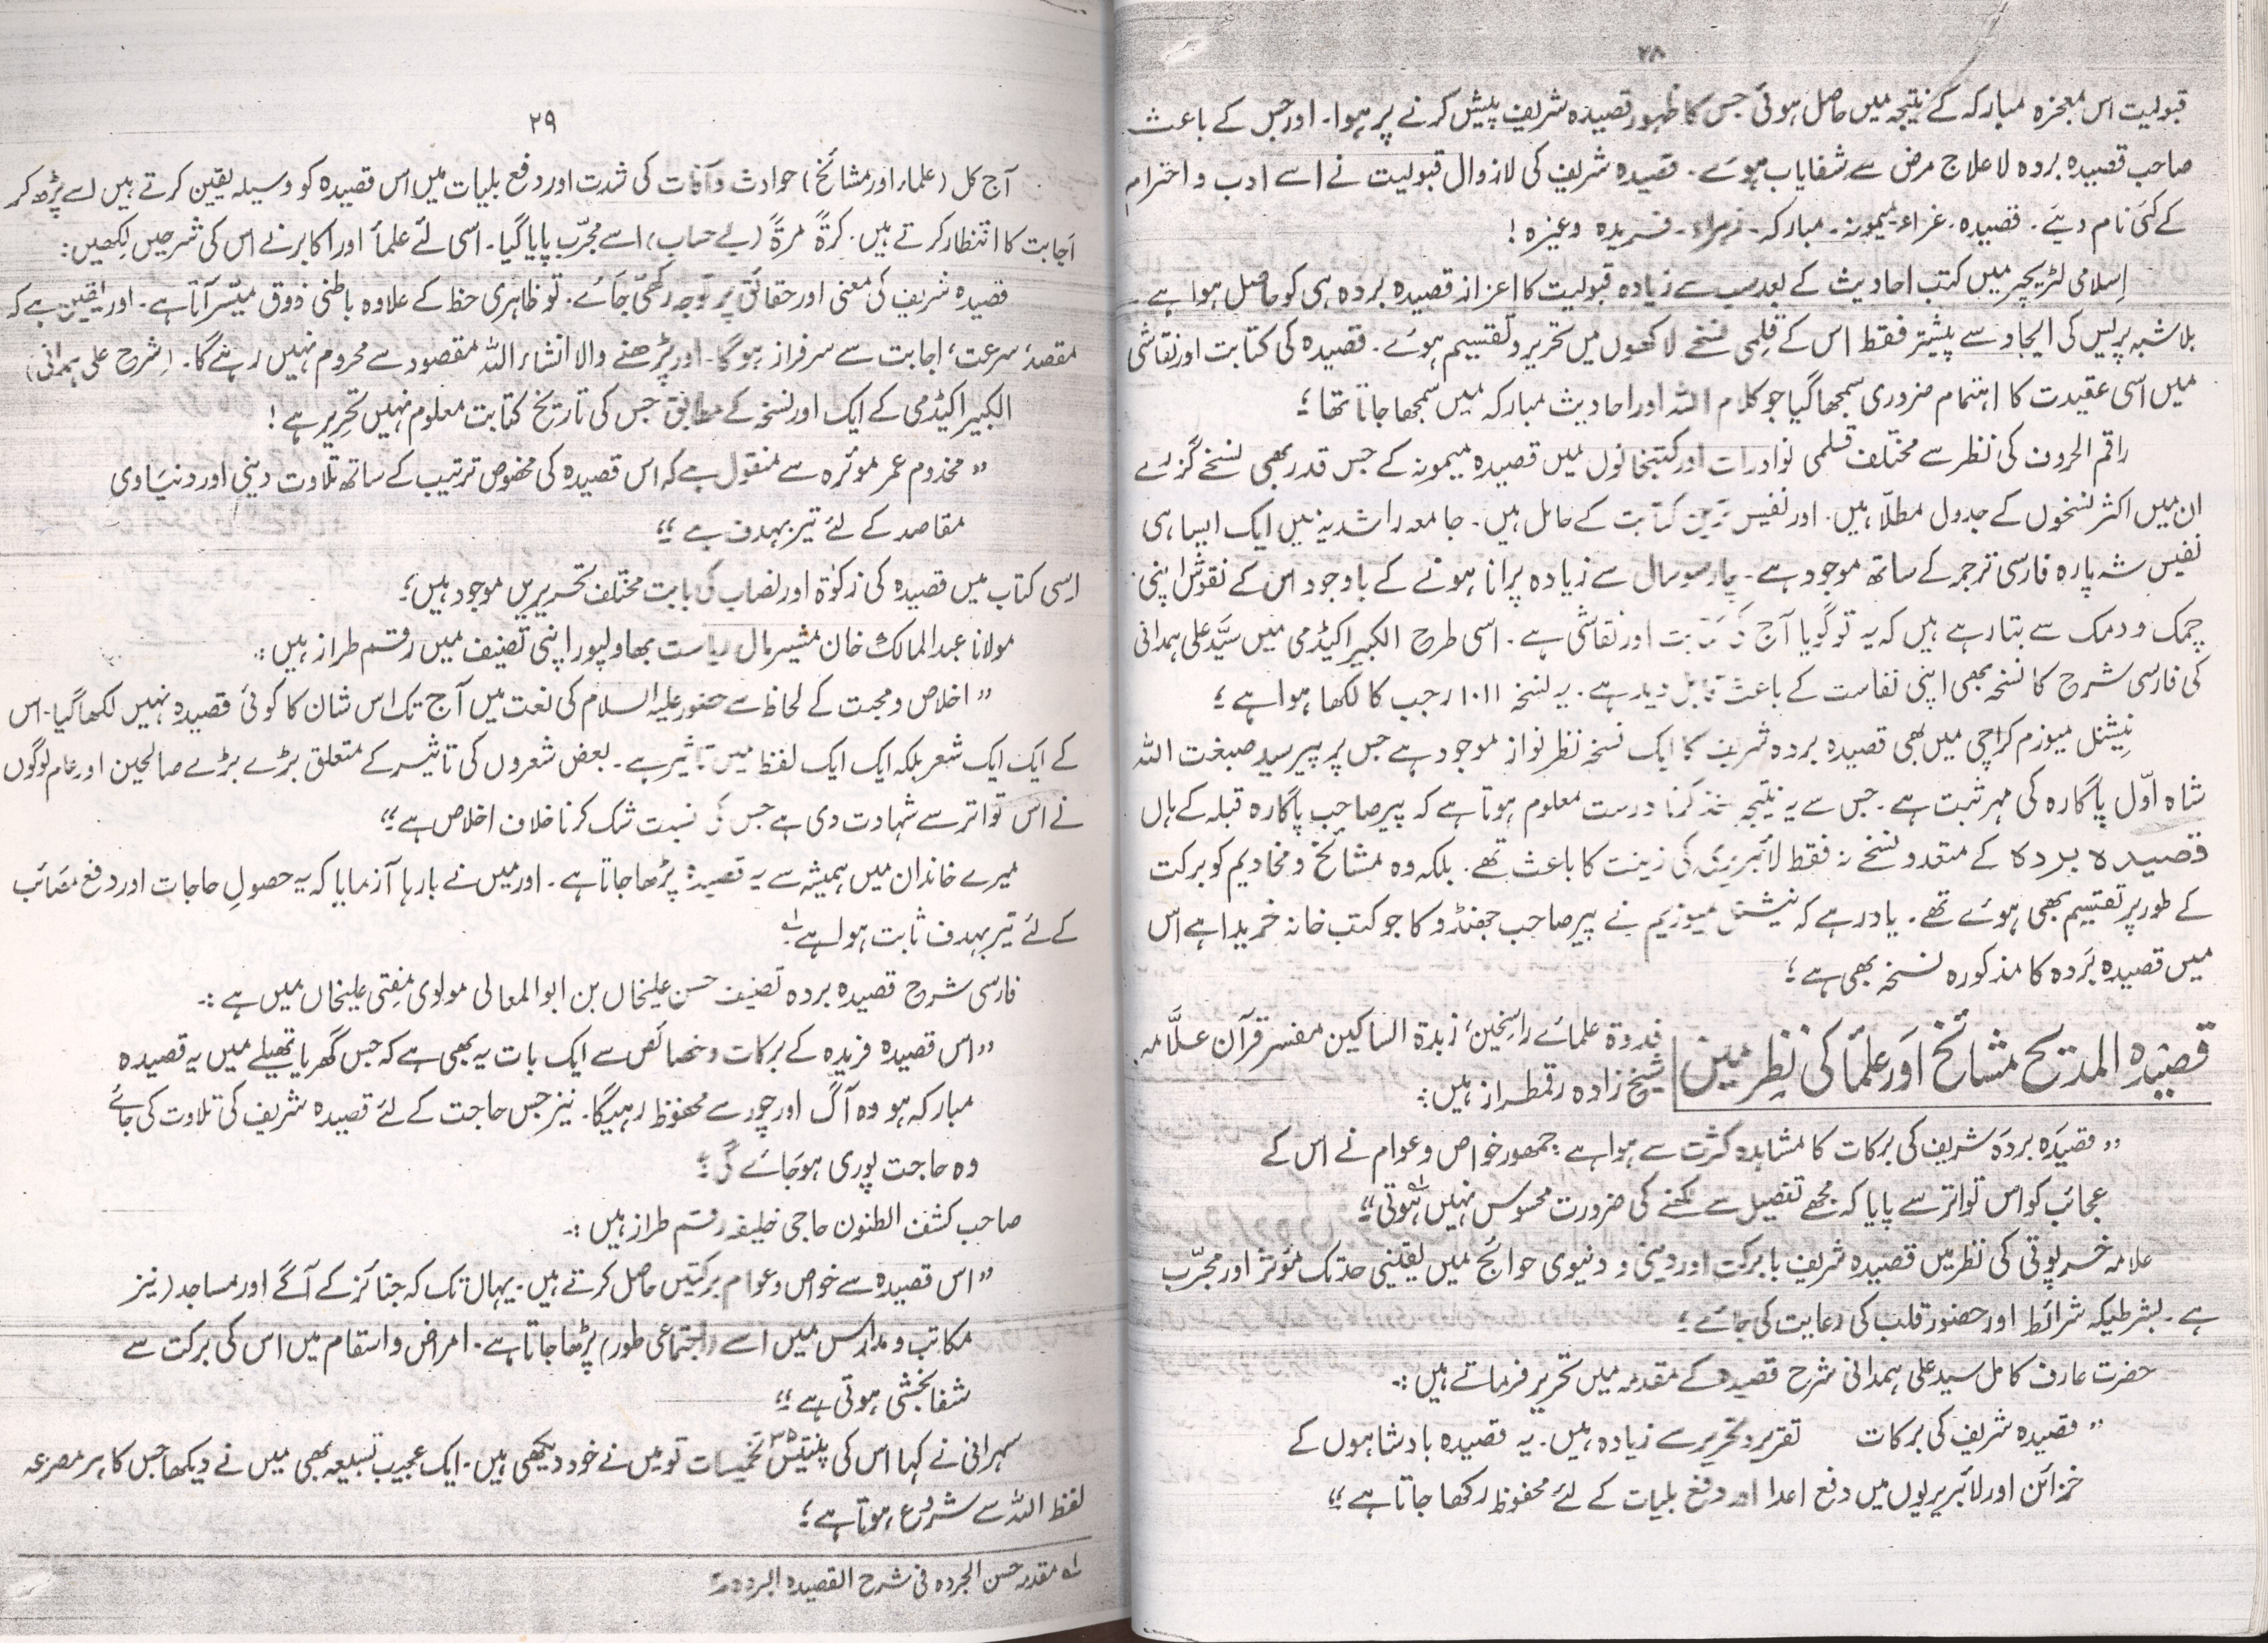 ۲۸
قبولیت اس معجزہ مبارکہ کے نتیجہ میں حاصل ہوئی جس کا ظہور قصیدہ شریف پیش کرنے پر ہوا۔ اور جس کے باعث
صاحب قصیدہ بردہ لا علاج مرض سے شفایاب ہوئے۔ قصیدہ شریف کی لازوال قبولیت نے اسے ادب و احترام
کے کئی نام دیئے۔ قصیدہ، غراء، میمونہ۔ مبارکہ۔ زہراء۔ فریدہ وغیرہ !
اِسلامی لٹریچر میں کتب احادیث کے بعد سب سے زیادہ قبولیت کا اعزاز قصیدہ بردہ ہی کو حاصل ہوا ہے۔
بلاشبہ پریس کی ایجاد سے پیشتر فقط اس کے قلمی نسخے لاکھوں میں تحریر و تقسیم ہوئے۔ قصیدہ کی کتابت اور نقاشی
میں اسی عقیدت کا اہتمام ضروری سمجھا گیا جو کلام اللہ اور احادیث مبارکہ میں سمجھا جاتا تھا ؛
راقم الحروف کی نظر سے مختلف قلمی نوادرات اور کتبخانوں میں قصیدہ میمونہ کے جس قدر بھی نسخے گزرے
ان میں اکثر نسخوں کے جدول مطلّا ہیں۔ اور نفیس ترین کتابت کے حامل ہیں۔ جامعہ راشدیہ میں ایک ایسا ہی
نفیس شہ پارہ فارسی ترجمہ کے ساتھ موجود ہے۔ چار سو سال سے زیادہ پرانا ہونے کے باوجود اس کے نقوش اپنی
چمک و دمک سے بتا رہے ہیں کہ یہ تو گویا آج کی کتابت اور نقاشی ہے۔ اسی طرح الکبیر اکیڈمی میں سیّد علی ہمدانی
کی فارسی شرح کا نسخہ بھی اپنی نفاست کے باعث قابل دید ہے۔ یہ نسخہ ۱۰۱۱ رجب کا لکھا ہوا ہے ؛
نیشنل میوزم کراچی میں بھی قصیدہ بردہ شریف کا ایک نسخہ نظر نواز موجود ہے جس پر پیر سید صبغت اللہ
شاہ اوّل پاگارہ کی مہر ثبت ہے۔ جس سے یہ نتیجہ اخذ کرنا درست معلوم ہوتا ہے کہ پیر صاحب پاگارہ قبلہ کے ہاں
قصیدہ بردہ کے متعدد نسخے نہ فقط لائبریری کی زینت کا باعث تھے۔ بلکہ وہ مشائخ و مخادیم کو برکت
کے طور پر تقسیم بھی ہوئے تھے۔ یاد رہے کہ نیشنل میوزیم نے پیر صاحب جھنڈو کا جو کتب خانہ خریدا ہے اس
میں قصیدہ بَردہ کا مذکورہ نسخہ بھی ہے ؛
قصیدہ المدیح مشائخ اور علماُ کی نظر میں
قدوۃ علمائے راسخین، زبدۃ الساکین مفسر قرآن علاَّمہ
شیخ زادہ رقمطراز ہیں :
”قصیدہ بردہ شریف کی برکات کا مشاہدہ کثرت سے ہوا ہے جمہور خواص و عوام نے اس کے
عجائب کو اس تواتر سے پایا کہ مجھے تفصیل سے لکھنے کی ضرورت محسوس نہیں ہوتی“ؑ
علامہ خرپوتی کی نظر میں قصیدہ شریف بابرکت اور دینی و دنیوی حوائج میں یقینی حد تک مؤثر اور مجرّب
ہے۔ بشرطیکہ شرائط اور حضور قلب کی رعایت کی جائے ؛
حضرت عارف کامل سید علی ہمدانی شرح قصیدہ کے مقدمہ میں تحریر فرماتے ہیں :۔
”قصیدہ شریف کی برکات تقریر و تحریر سے زیادہ ہیں۔ یہ قصیدہ بادشاہوں کے
خزائن اور لائبریریوں میں دفع اعدا اور دفع بلیات کے لئے محفوظ رکھا جاتا ہے“
۲۹
آج کل (علماء اور مشائخ) حوادث و آفات کی شدت اور دفع بلیات میں اس قصیدہ کو وسیلہ یقین کرتے ہیں اسے پڑھ کر
اجابت کا انتظار کرتے ہیں۔ کرۃً مرۃً (بے حساب) اسے مجرّب پایا گیا۔ اسی لئے علماُ اور اکابر نے اس کی شرحیں لکھیں :
قصیدہ شریف کی معنی اور حقائق پر توجہ رکھی جائے۔ تو ظاہری حظ کے علاوہ باطنی ذوق میسّر آتا ہے۔ اور یقین ہے کہ
مقصد، سرعت، اجابت سے سرفراز ہوگا۔ اور پڑھنے والا انشاء اللہ مقصود سے محروم نہیں رہے گا۔ (شرح علی ہمدانی)
الکبیر اکیڈمی کے ایک اور نسخہ کے مطابق جس کی تاریخ کتابت معلوم نہیں تحریر ہے !
”مخدوم عمر موثرہ سے منقول ہے کہ اس قصیدہ کی مخصوص ترتیب کے ساتھ تلاوت دینی اور دنیاوی
مقاصد کے لئے تیر بہدف ہے“
اسی کتاب میں قصیدہ کی زکوٰۃ اور نصاب کی بابت مختلف تحریریں موجود ہیں ؛
مولانا عبدالمالک خان مشیر مال ریاست بھاولپور اپنی تصنیف میں رقم طراز ہیں :۔
”اخلاص و محبت کے لحاظ سے حضور علیہ السلام کی نعت میں آج تک اس شان کا کوئی قصیدہ نہیں لکھا گیا۔ اس
کے ایک ایک شعر بلکہ ایک ایک لفظ میں تاثیر ہے۔ بعض شعروں کی تاثیر کے متعلق بڑے بڑے صالحین اور عام لوگوں
نے اس تواتر سے شہادت دی ہے جس کی نسبت شک کرنا خلاف اخلاص ہے“
میرے خاندان میں ہمیشہ سے یہ قصیدہ پڑھا جاتا ہے۔ اور میں نے بارہا آزمایا کہ یہ حصولِ حاجات اور دفع مصائب
کے لئے تیر بہدف ثابت ہوا ہے؎۱
فارسی شرح قصیدہ بردہ تصنیف حسن علیخاں بن ابوالمعالی مولوی مفتی علیخاں میں ہے :۔
”اس قصیدہ فریدہ کے برکات و خصائص سے ایک بات یہ بھی ہے کہ جس گھر یا تھیلے میں یہ قصیدہ
مبارکہ ہو وہ آگ اور چور سے محفوظ رہیگا۔ نیز جس حاجت کے لئے قصیدہ شریف کی تلاوت کی جائے
وہ حاجت پوری ہوجائے گی ؛
صاحب کشف الظنون حاجی خلیفہ رقم طراز ہیں :۔
”اس قصیدہ سے خواص و عوام برکتیں حاصل کرتے ہیں۔ یہاں تک کہ جنائز کے آگے اور مساجد (نیز
مکاتب و مدارس میں اسے (اجتماعی طور) پڑھا جاتا ہے۔ امراض و اسقام میں اس کی برکت سے
شفا بخشی ہوتی ہے“
سہرانی نے کہا اس کی پنتیس ۳۵ تخمیسات تو میں نے خود دیکھی ہیں۔ ایک عجیب تسبیعہ بھی میں نے دیکھا جس کا ہر مصرعہ
لفظ اللہ سے شروع ہوتا ہے ؛
؎۱ مقدمہ حسن الجردہ فی شرح القصیدہ البردہ